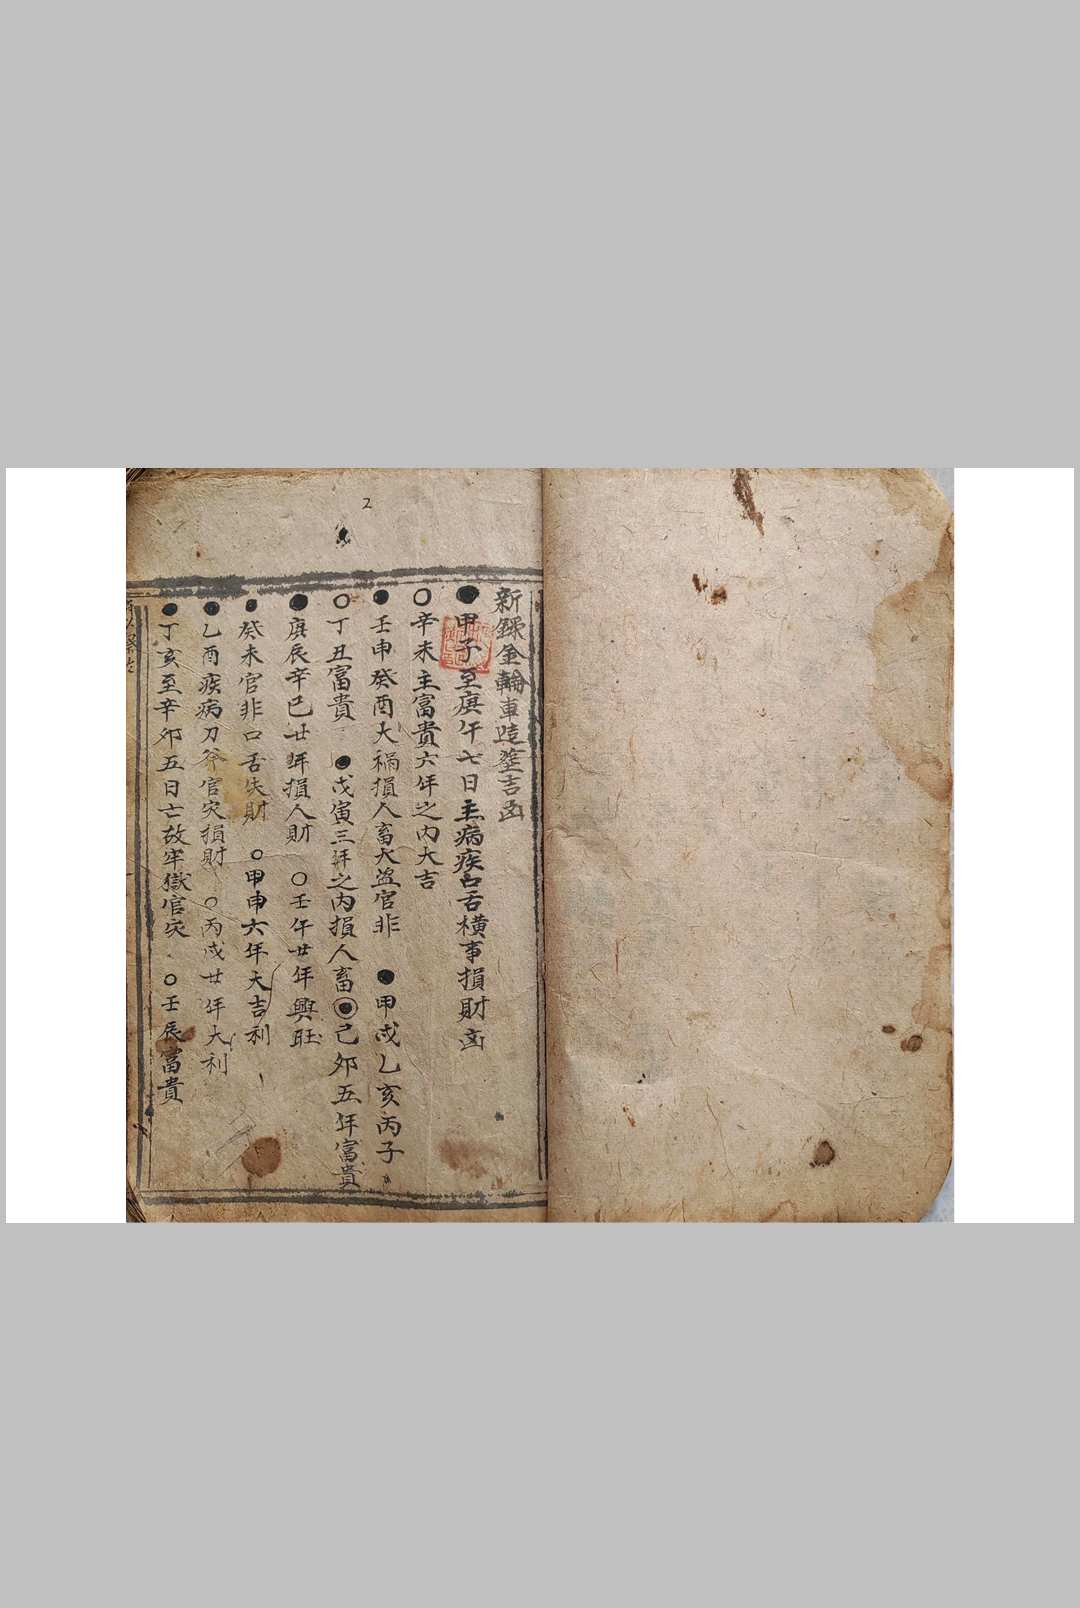 2
新錄金輪車造塟吉凶
●甲子至庚午七日主病疾口舌橫事損財凶
○辛未主富貴六年之内大吉
●壬申癸酉大禍損人畜大盜官非 ●甲戌乙亥丙子
○丁丑富貴 ●戊寅三年之内損人畜◉己卯五年富貴
●庚辰辛巳廿年損人財 ○壬午廿年興旺
●癸未官非口舌失財 ○甲申六年大吉利
●乙酉疾病刀斧官灾損財 ○丙戌廿年大利
●丁亥至辛卯五日亡故牢獄官灾 ○壬辰富貴